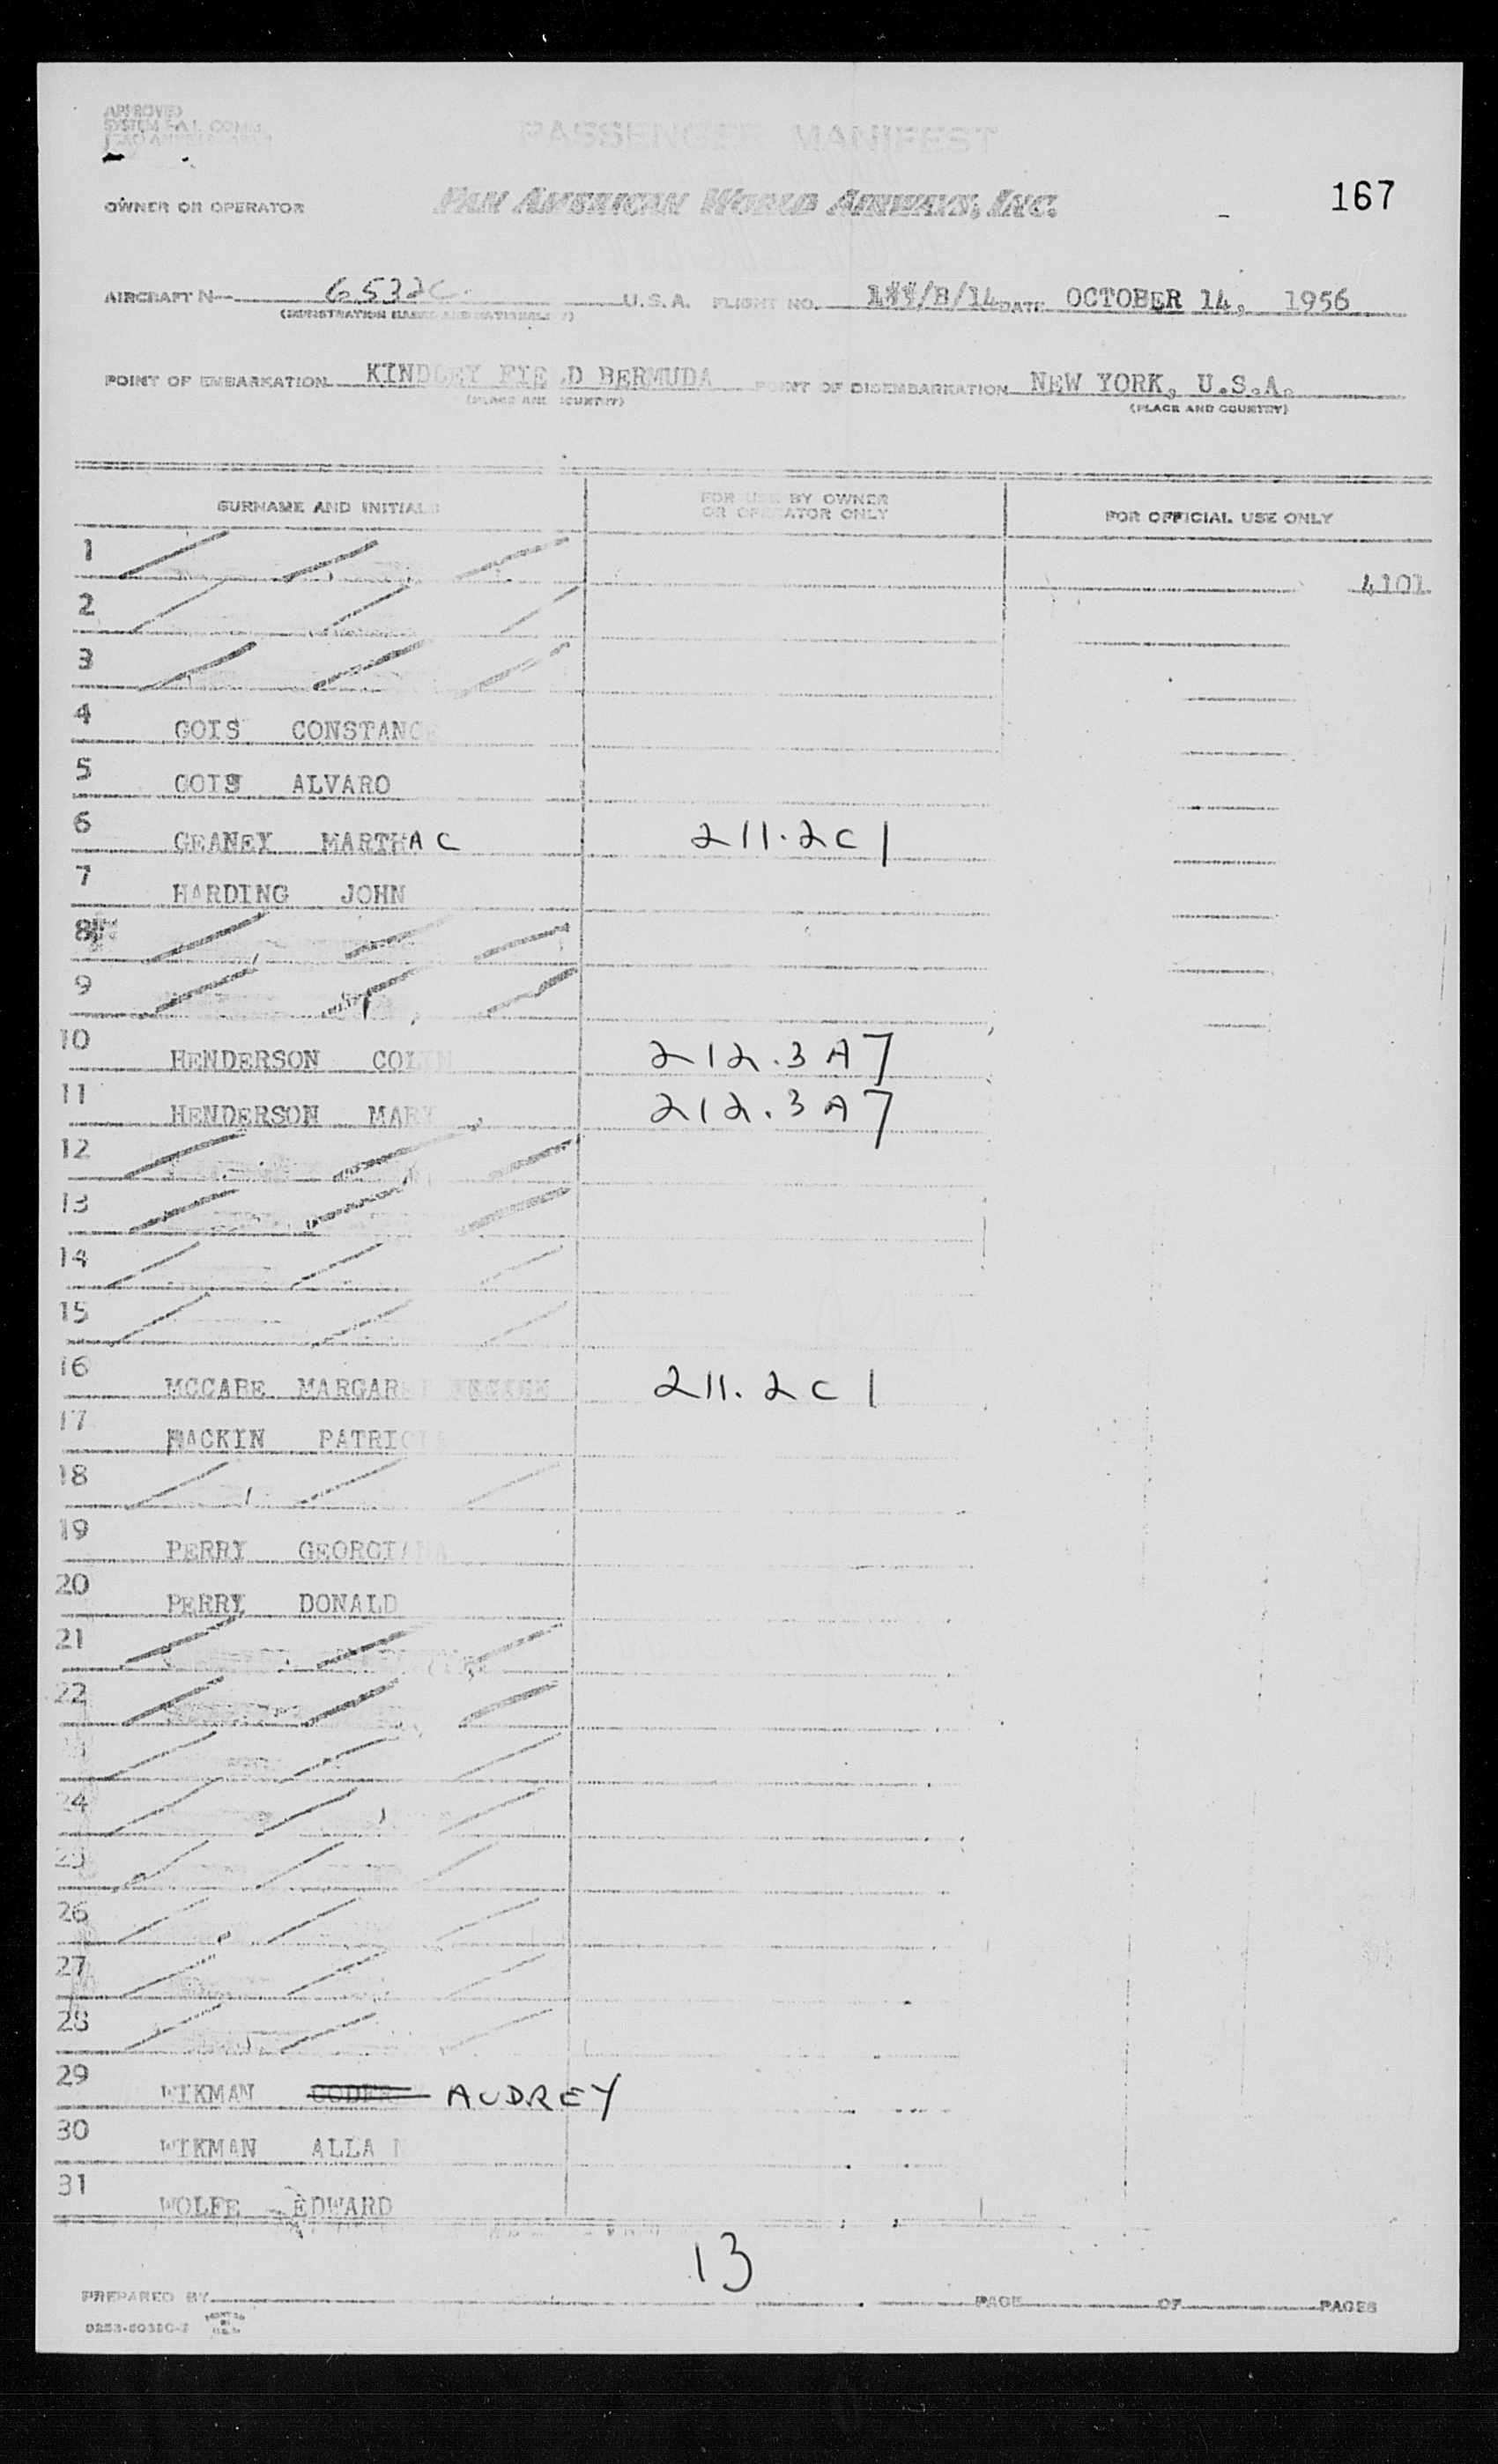 APPROVED
PASSENGER MANIFEST
OWNER OR OPERATOR PAN AMERICAN WORLD AIRWAYS, INC. 167
AIRCRAFT N 6532C U.S.A. FLIGHT NO. /B/14 DATE OCTOBER 14, 1956
POINT OF EMBARKATION KINDLEY FIELD BERMUDA POINT OF DISEMBARKATION NEW YORK, U.S.A.
(PLACE AND COUNTRY) (PLACE AND COUNTRY)
SURNAME AND INITIALS FOR USE BY OWNER OR OPERATOR ONLY FOR OFFICIAL USE ONLY
1
4101
2
3
4 GOIS CONSTANCE
5 GOIS ALVARO
6 GEANEY MARTHA C 211.2C1
7 HARDING JOHN
8
9
10 HENDERSON COLIN 212.3A7
11 HENDERSON MARY 212.3A7
12
13
14
15
16 MCCABE MARGARET 211.2C1
17 MACKIN PATRICIA
18
19 PERRY GEORGIANA
20 PERRY DONALD
21
22
24
25
26
27
28
29 WIKMAN AUDREY
30 WIKMAN ALLAN
31 WOLFE EDWARD
13
PREPARED BY PAGE OF PAGES